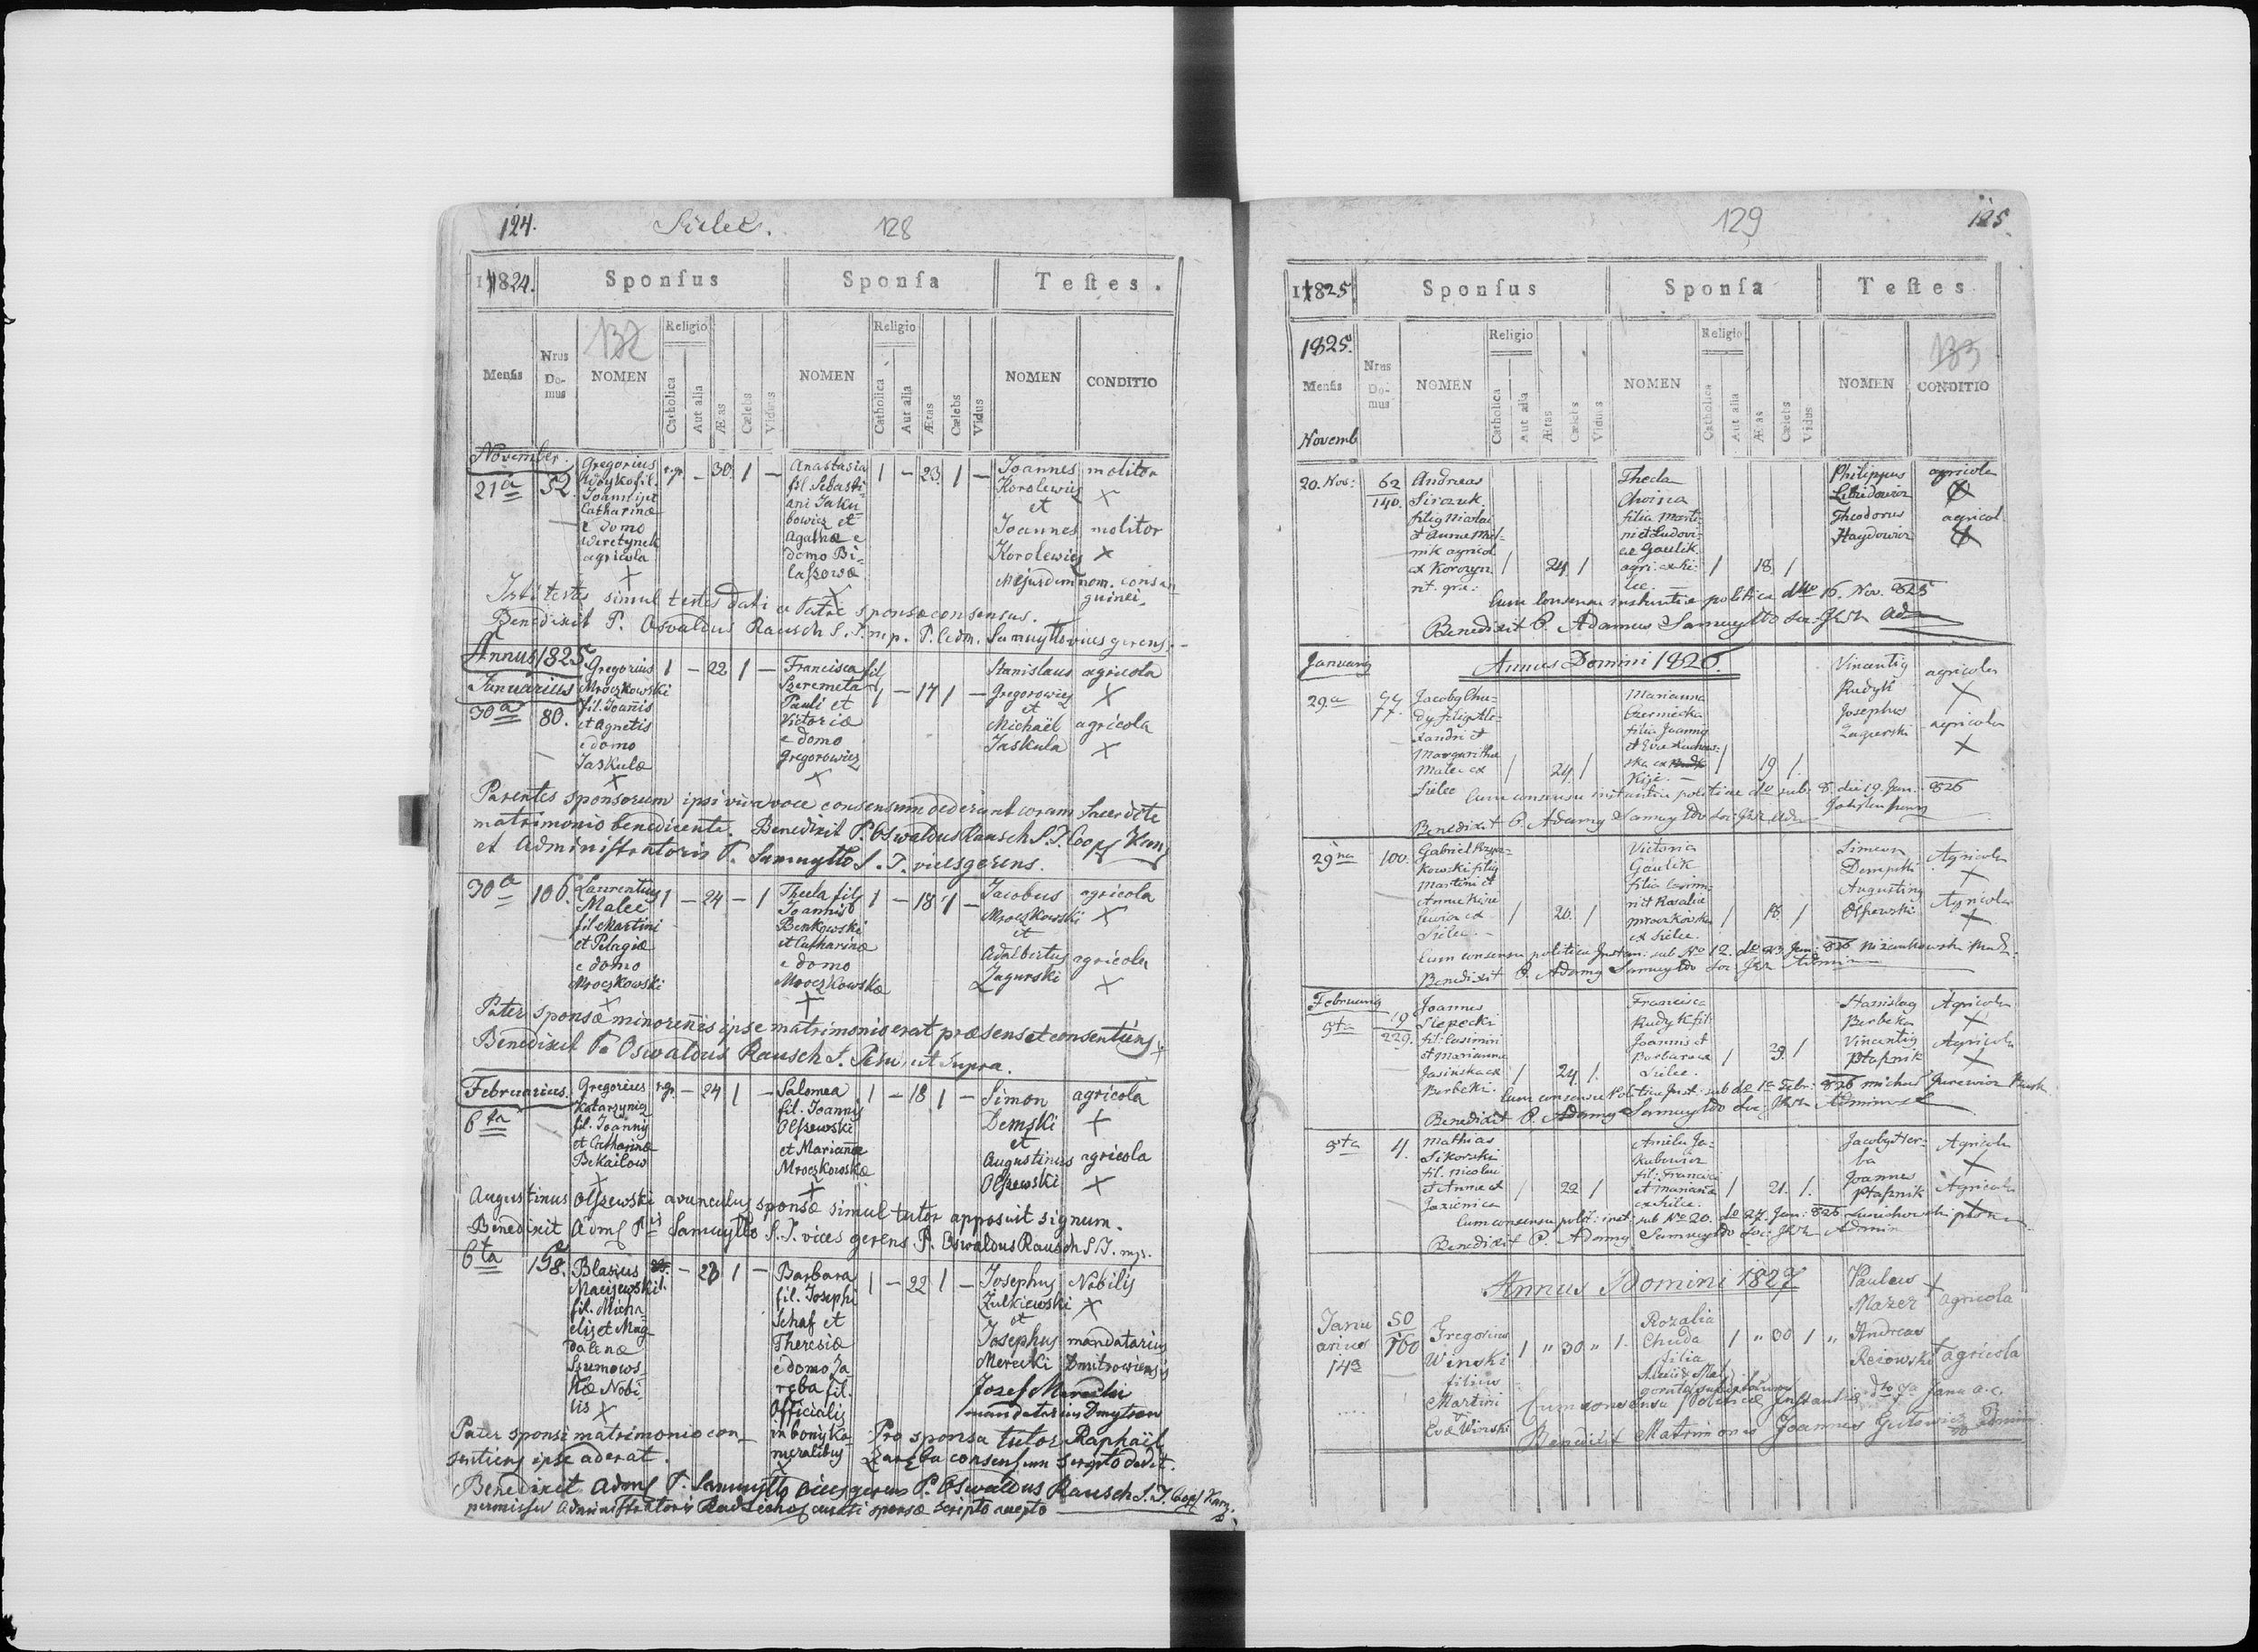 124. Sielec. 128
11824. Sponſus Sponſa Teſtes.
132
Menſis Nrus Domus NOMEN Religio Catholica Aut alia Ætas Cælebs Viduus NOMEN Religio Catholica Aut alia Ætas Cælebs Vidus NOMEN CONDITIO
November.
21a 52.
Gregorius
Joannis et
Catharinæ
e domo
Weretynek
agricola
r.gr. – 30. 1 –
Anastasia
fil. Sebasti-
ani Jaku-
bowicz et
Agathæ e
domo Bi-
laſsowæ
1 – 23. 1 –
Joannes molitor
Korolewicz
et
Joannes molitor
Korolewicz
ejusdem nom. consan-
guinei.
Isti testes simul testes dati a Patre sponsæ consensus.
Benedixit P. Osvaldus Rausch S.J. mp. P. Adm. Samuyłło vices gerens.
Annus 1825
Januarius
30a 80.
Gregorius
Mroczkowski
fil. Joañis
et Agnetis
e domo
Jaskulæ
1 – 22 1 –
Francisca fil.
Szeremeta
Pauli et
Victoriæ
e domo
Gregorowicz
1 – 17 1 –
Stanislaus agricola
Gregorowicz
et
Michaël agricola
Jaskula
Parentes sponsorum ipsi viva voce consensum dederunt coram Sacerdote
matrimonio benedicente. Benedixit P. Oswaldus Rausch S.J. Coop.
et Administratoris P. Samuyłło S.J. vicesgerens.
30a 106.
Laurentius
Malec
fil. Martini
et Pelagiæ
e domo
Mroczkowski
1 – 24 – 1
Thecla fil.
Joannis
Benkowski
et Catharinæ
e domo
Mroczkowskæ
1 – 18 1 –
Jacobus agricola
Mroczkowski
et
Adalbertus agricola
Zagurski
Pater sponsæ minorenis ipse matrimonio erat præsens et consentiens
Benedixit P. Oswaldus Rausch S. Jesu, ut supra.
Februarius.
6ta
Gregorius
Katarzynicz
fil. Joannis
et Catharinæ
Bekailow
r.gr. – 24 1 –
Salomea
fil. Joannis
Olſzewski
et Mariañæ
Mroczkowskæ
1 – 18 1 –
Simon agricola
Demski
et
Augustinus agricola
Olſzewski
Augustinus Olſzewski avunculus sponsæ simul tutor apposuit signum.
Benedixit Adm. Samuyłło S.J. vices gerens P. Oswaldus Rausch S.J. mp.
6ta 198.
Blasius
Maciejewski
fil. Micha-
elis et Mag-
dalenæ
Szumows-
kæ Nobi-
lis
– 23 1 –
Barbara
fil. Josephi
Schaf et
Theresiæ
e domo Za-
ręba fil.
Officialis
in bonis Ka-
meralibus
1 – 22 1 –
Josephus Nobilis
Zulkiewski
et
Josephus mandatarius
Merecki Dmitrowiensis
Jozef Merecki
mandatarius Dmytrow
Pater sponsi matrimonio con-
sentiens ipse aderat.
Pro sponsa tutor Raphaël
Zaręba consensum scripto dedit.
Benedixit Adm. P. Samuyłło vices gerens P. Oswaldus Rausch S.J. Coop.
permissu Administratoris Radziechov. curati sponsæ scripto accepto
129 125.
11825. Sponſus Sponſa Teſtes
1825.
133
Menſis Nrus Domus NOMEN Religio Catholica Aut alia Ætas Cælebs Viduus NOMEN Religio Catholica Aut alia Ætas Cælebs Vidus NOMEN CONDITIO
Novemb
20. Nov: 62
140.
Andreas
Sirczuk
filig Nicolai
et Annæ Mel-
nik agricol
ex Korczyn
rit. græ:
1 24 1
Thecla
Choina
filia Marti-
ni et Ludovi-
cæ Gaulik
agri. ex Si-
lec
1 18 1
Philippus agricola
Theodorus agricol
Haydowicz
Cum consensu instantiæ politicæ dtto 16. Nov. 825
Benedixit P. Adamus Samuyłło Soc. Jesu Adm
Januarig Annus Domini 1826.
29.a 94
77.
Jacobg Chu-
dy filig Ale-
xandri et
Margarithæ
Malec ex
Sielec
1 24 1
Marianna
Czernicka
filia Joanng
et Evæ
ska ex
1 19 1
Vincentig agricola
Rudyk
Josephus agricola
Zagurski
Cum consensu instantiæ politicæ dto sub 8. die 19. Jan. 826
Benedixit P. Adamg Samuyłło Soc. Jesu Adm
29na 100.
Gabriel
kowski filig
Martini et
Annæ
ex
Sielec
1 26 1
Victoria
Gaulik
filia Casimi-
ri et Rosaliæ
Mroczkowska
ex Sielec.
1 18 1
Simeon Agricola
Dempski
Augusting Agricola
Olſzewski
Cum consensu politicæ Instan: sub No 12. do 23 Jan: 826
Benedixit P. Adamg Samuyłło Soc. Jesu Admin
Februarig
5ta 19
229.
Joannes
Slepecki
fil: Casimiri
et Marianna
Jasinska ex
Berbeki.
1 24 1.
Francisca
Rudyk fil:
Joannis et
Barbara ex
Sielec.
1 29. 1
Stanislag Agricola
Berbeka
Vincentig Agricola
Ptaſznik
Cum consensu Politicæ Inst: sub do 1a Febr: 826 Michael Jurewicz
Benedixit P. Adamg Samuyłło Soc: Jesu Admin
5ta 4.
Mathias
Sikorski
fil. Nicolai
et Annæ ex
Jazienica
1 22 1
Amelia Ja-
kubowicz
fil: Francisci
et Mariañæ
ex Sielec.
1 21. 1.
Jacobg Her-
ba Agricola
Joannes
Ptaſznik Agricola
Cum consensu polit: inst: sub No 20. do 27. Jan: 826
Benedixit P. Adamg Samuyłło Soc: Jesu Admin
Annus Domini 1827
Janu
arius
14a
50
160
Gregorius
Winski
filius
Martini
Evæ Winski
1 " 30 " 1.
Rozalia
Chuda
filia
1 " 30 1 "
Paulus
Mazer agricola
Andreas
Reiowski agricola
Cum consensu Politicæ Instantiæ dto Janu a.c.
Benedixit Matrimonio Joannes Gutowicz